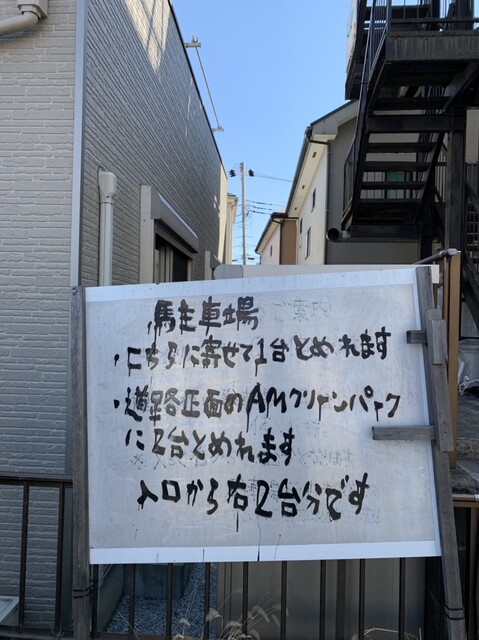 駐車場
ご案内
・こちらに寄せて1台とめれます
・道路正面のAMクリーンパーク
に2台とめれます
入口から右2台分です